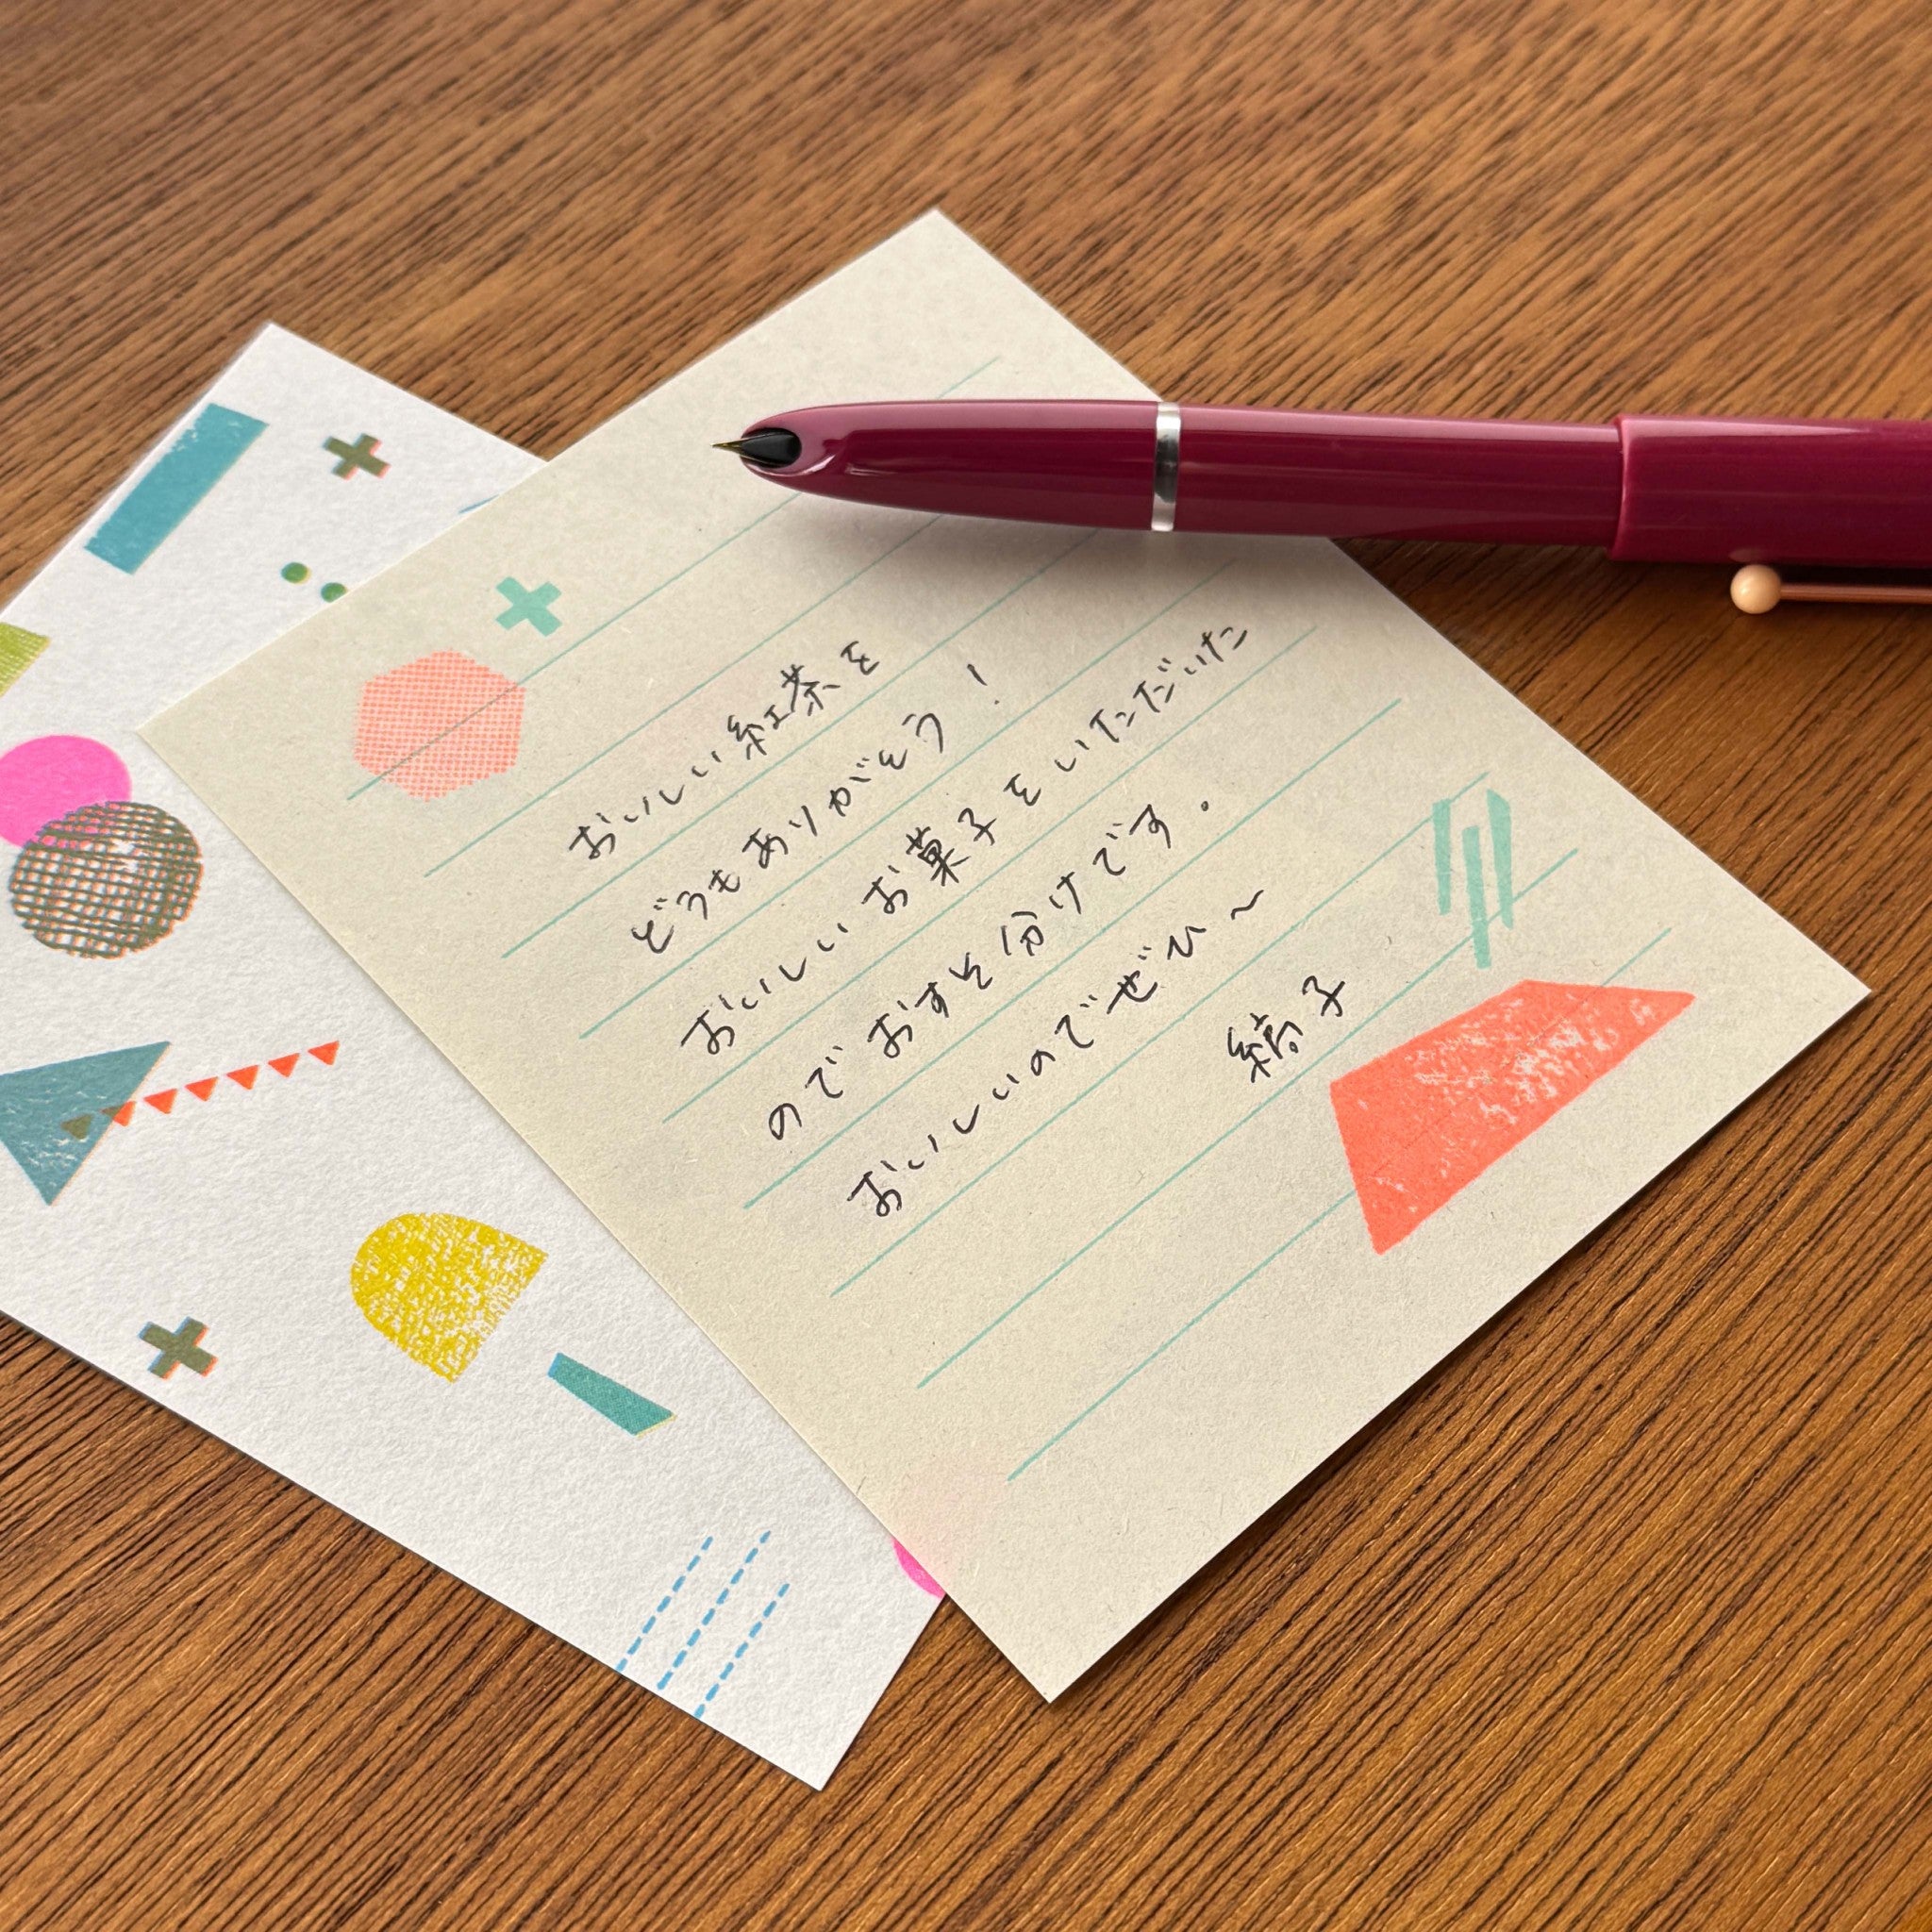 おいしい紅茶を
どうもありがとう!
おいしいお菓子をいただいた
のでおすそ分けです。
おいしいのでぜひ〜
縞子